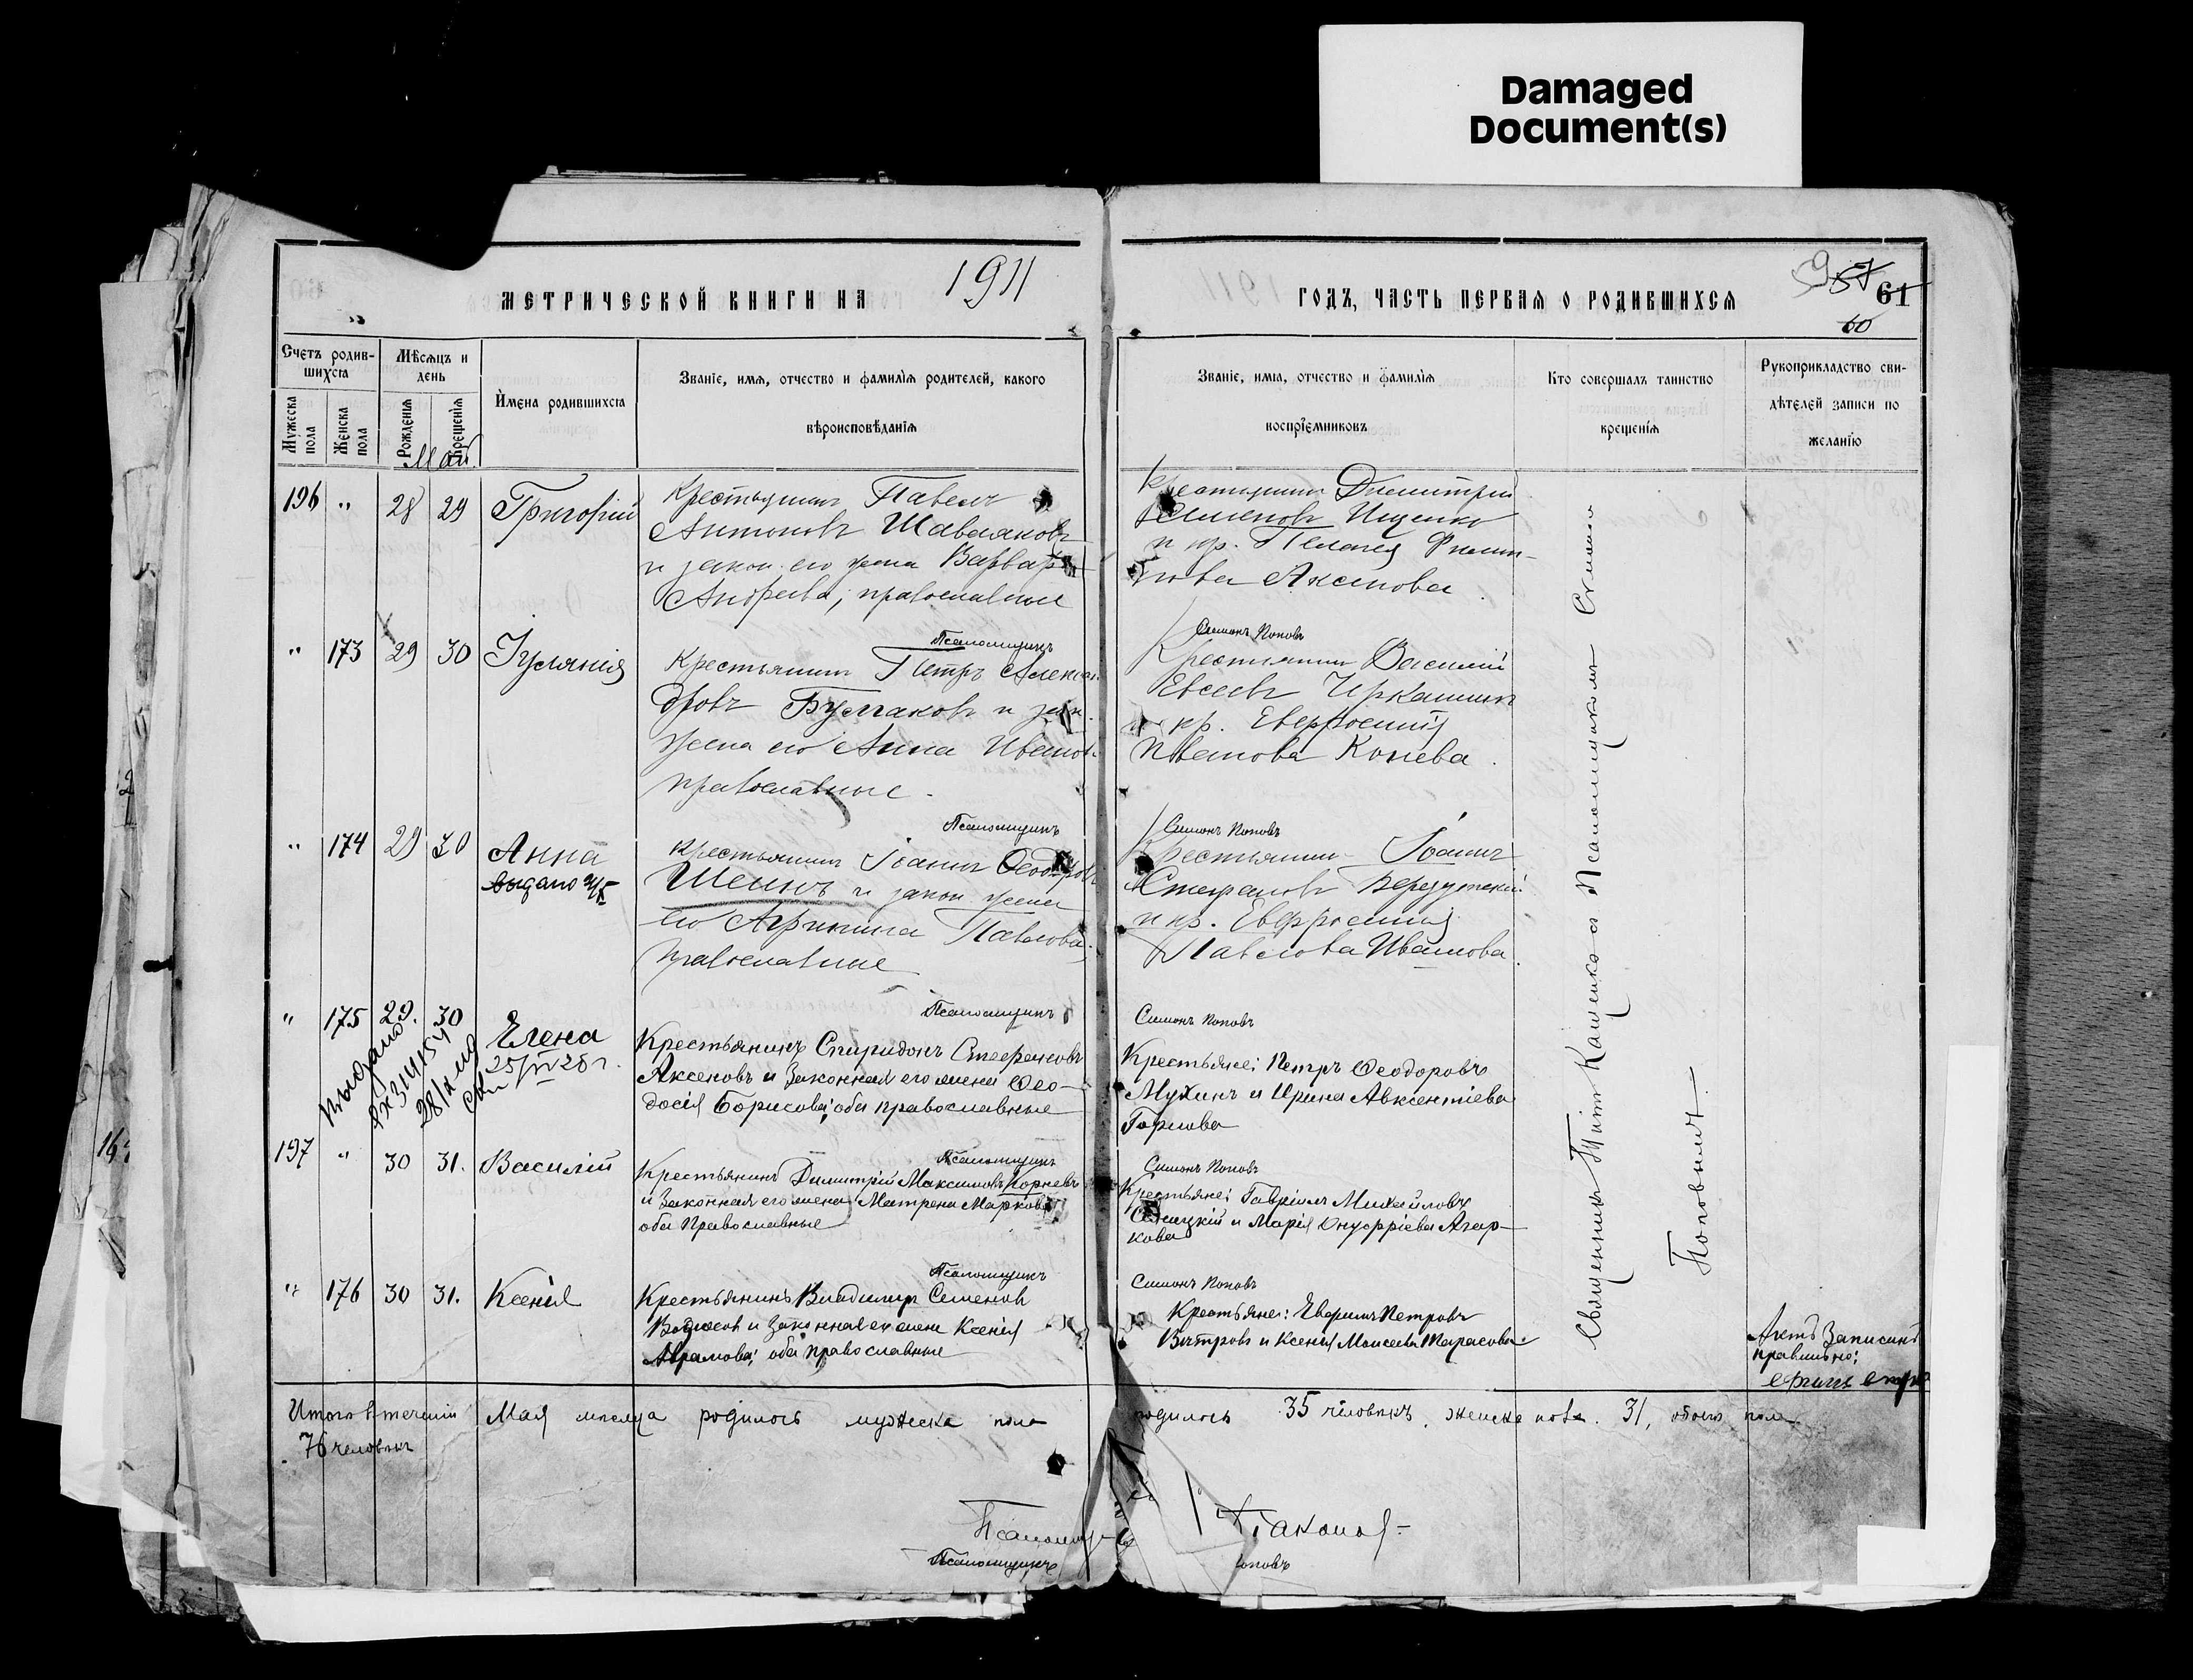 Damaged
Document(s)
МЕТРИЧЕСКОЙ КНИГИ НА 1911
ГОДЪ, ЧАСТЬ ПЕРВАЯ О РОДИВШИХСЯ
57 61
60
Счетъ родив-
шихся
Мѣсяцъ и
день
Мужеска
пола
Женска
пола
Рожденія
Крещенія
Имена родившихся
Званіе, имя, отчество и фамилія родителей, какого
вѣроисповѣданія
Званіе, имя, отчество и фамилія
воспріемниковъ
Кто совершалъ таинство
крещенія
Рукоприкладство сви-
дѣтелей записи по
желанію
Май
196 " 28 29 Григорій
Крестьянинъ Павелъ
Антоновъ
и закон. его жена Варвара
Андреева, православные
Крестьянинъ Димитрій
Семеновъ Ищенко
и кр. Пелагея Филип-
пова Аксенова
Псаломщикъ Симонъ Поповъ
" 173 29 30 Іуліанія
Крестьянинъ Петръ Алексан-
дровъ Булгаковъ и зак.
жена его Анна Иванова
православные.
Крестьянинъ Василій
Евсеевъ
и кр. Евфросинія
Иванова Конева.
Псаломщикъ Симонъ Поповъ
" 174 29 30 Анна
выдано
Крестьянинъ Іоаннъ Ѳеодоровъ
Шеинъ и закон жена
его Агрипина Павлова
православные
Крестьянинъ Іоаннъ
Стефановъ
и кр. Евфросинія
Павлова Иванова.
Псаломщикъ Симонъ Поповъ
" 175 29. 30 Елена
25/VI 28 г.
выдано
Крестьянинъ Спиридонъ Стефановъ
Аксеновъ и Законная его жена Ѳео-
досія Борисова; оба православные
Крестьяне: Петръ Ѳеодоровъ
Мухинъ и Ирина Авксентіева
Горлова
Псаломщикъ Симонъ Поповъ
197 " 30 31. Василій
Крестьянинъ Димитрій Максимовъ Корневъ
и Законная его жена Матрена Маркова
оба Православные
Крестьяне: Гавріилъ Михайловъ
и Марія Онуфріева Агар-
кова
Псаломщикъ Симонъ Поповъ
" 176 30 31. Ксенія
Крестьянинъ Владимиръ Семенов
и Законная его жена Ксенія
Аврамова; оба православные
Крестьяне: Петровъ
и Ксенія Моисеева Тарасова.
Священникъ Титъ Кащенко съ Псаломщикомъ Симономъ
Поповымъ
Актъ Записанъ
правильно:
Итого в теченіи Мая месяца родилось мужеска пола
родилось 35 человѣкъ, женска пола. 31, обоего пола
76 человѣкъ
Псаломщикъ
поповъ